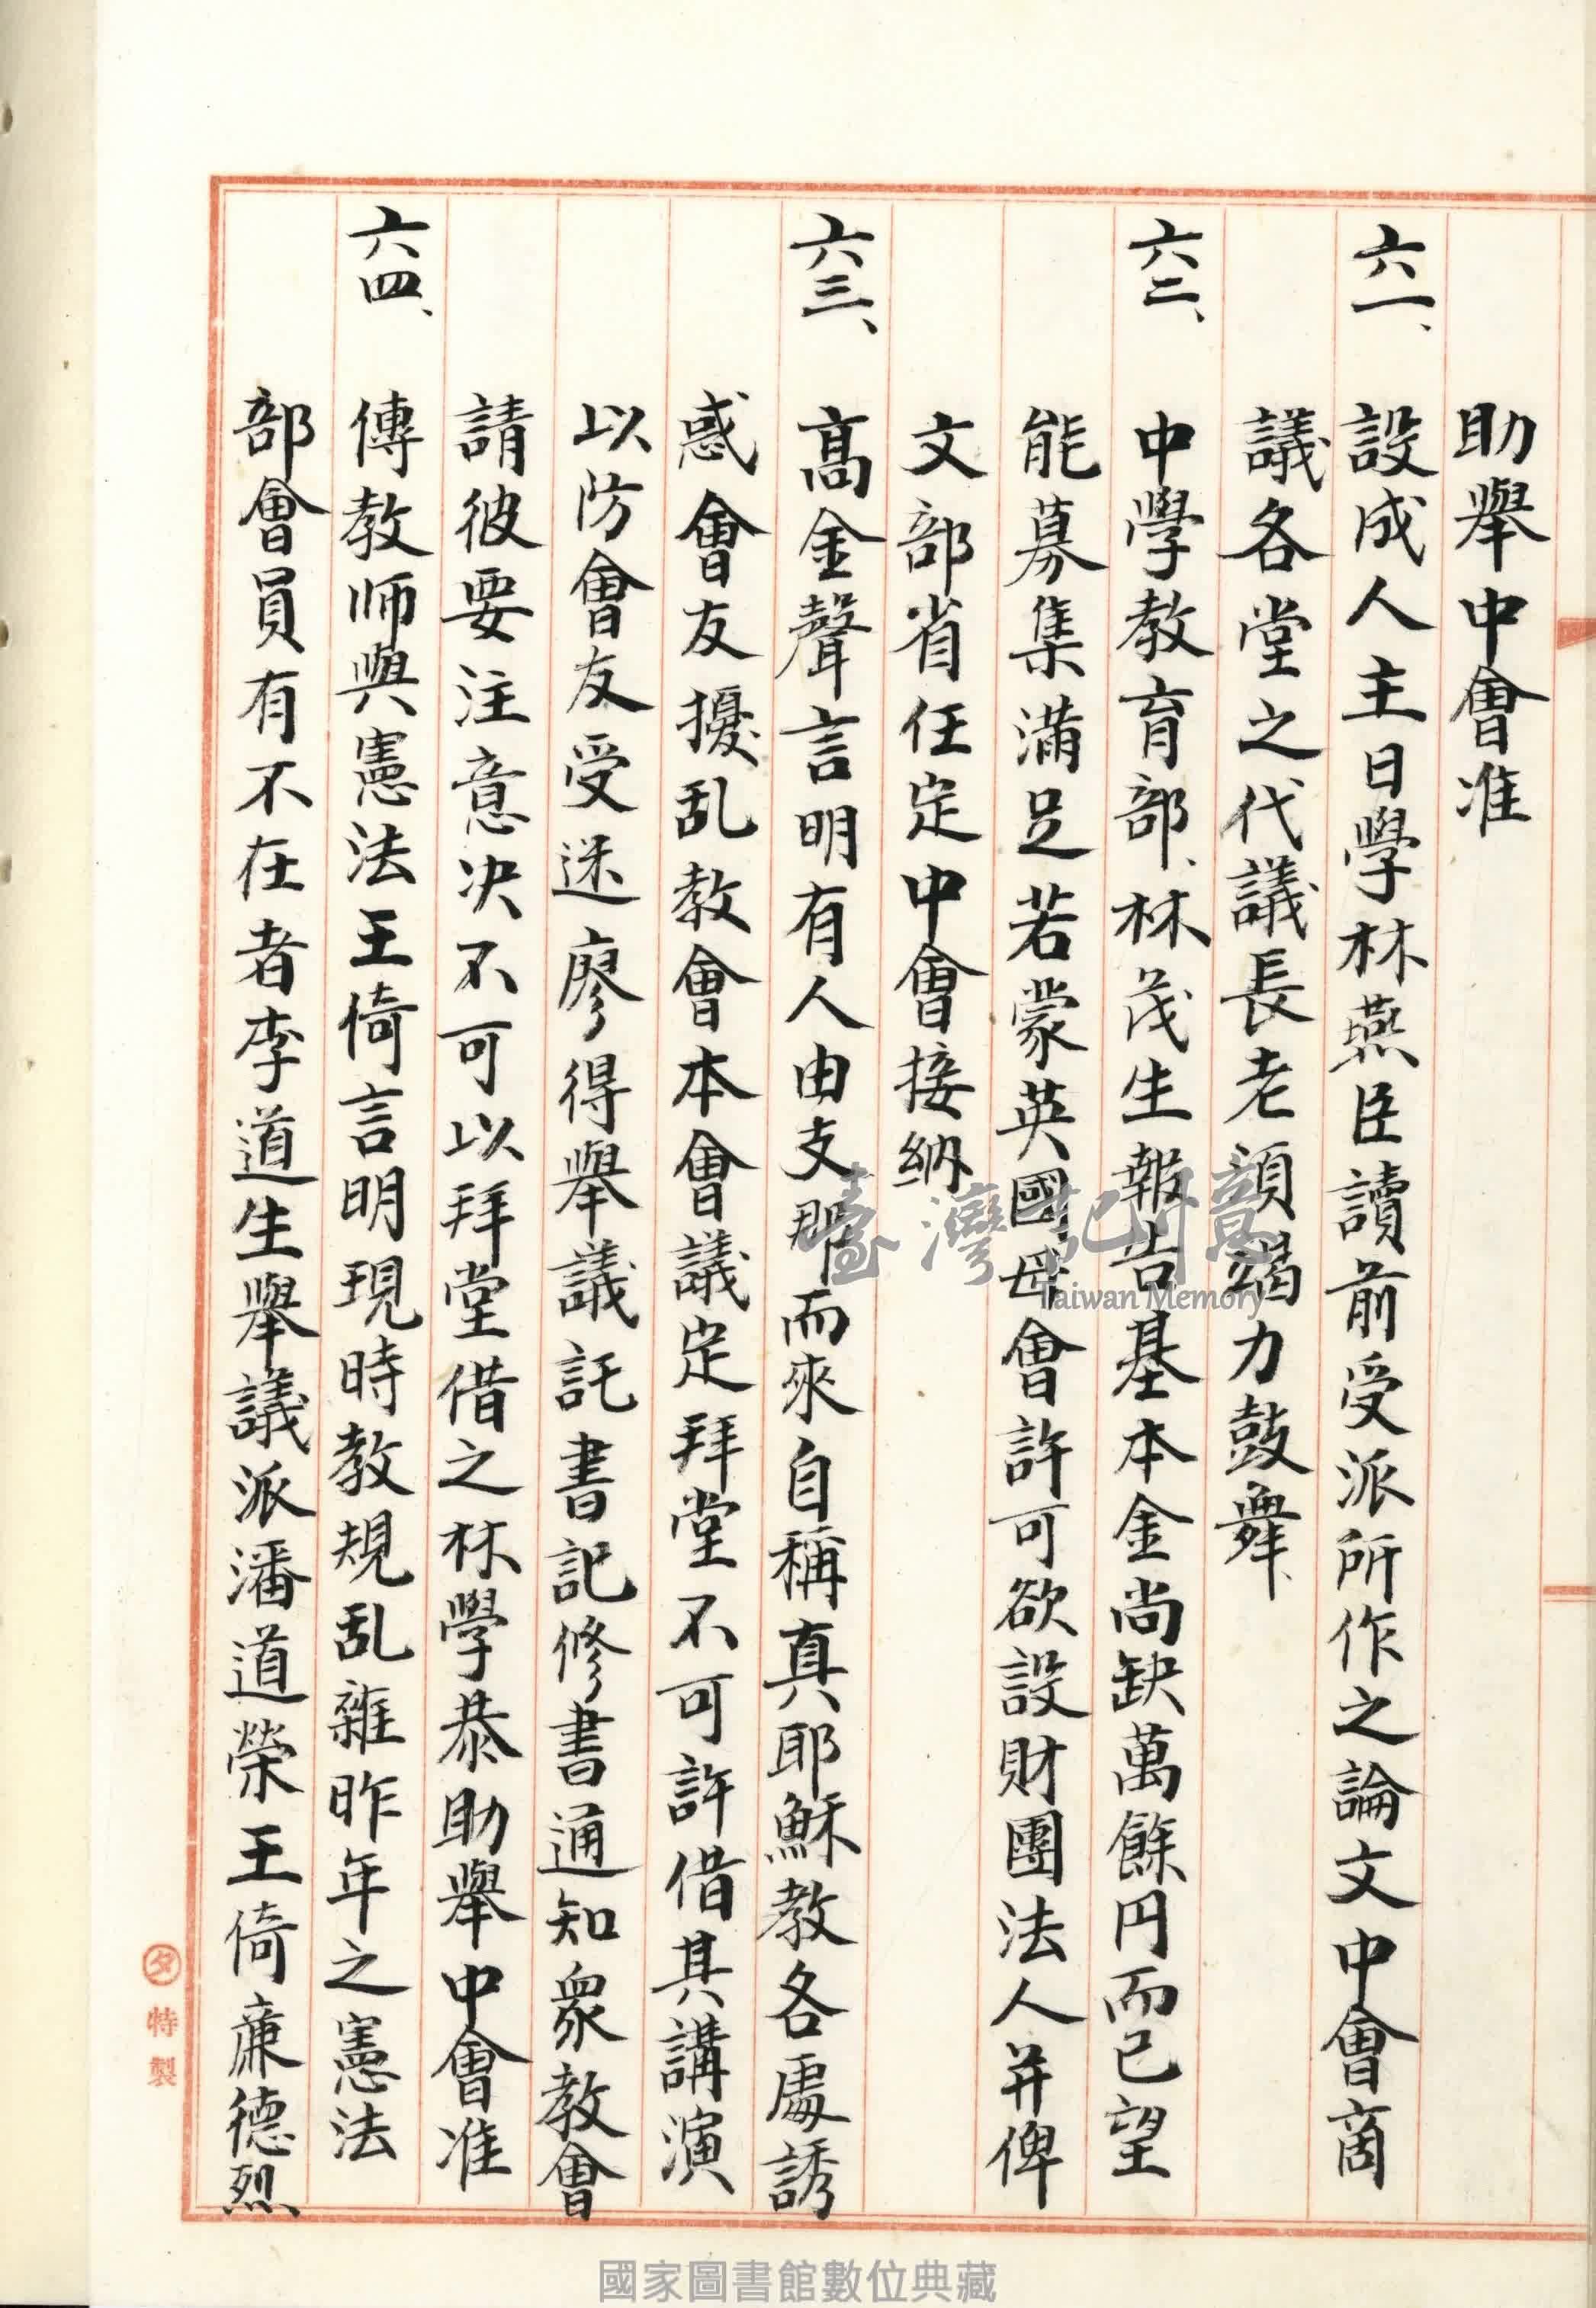 助舉中會准
六一、設成人主日學林燕臣讀前受派所作之論文中會商
議各堂之代議長老須竭力鼓舞、
六二、中學教育部、林茂生報告基本金尚缺萬餘円而已望
能募集滿足若蒙英國母會許可欲設財團法人并俾
文部省任定中會接納
六三、高金聲言明有人由支那而來自稱真耶穌教各處誘
惑會友擾乱教會本會議定拜堂不可許借其講演
以防會友受迷廖得舉議託書記修書通知眾教會
請彼要注意决不可以拜堂借之林學恭助舉中會准
六四、傳教师與憲法王倚言明現時教規乱雜昨年之憲法
部會員有不在者李道生舉議派潘道榮王倚廉德烈
夕特製
臺灣記憶
Taiwan Memory
國家圖書館數位典藏